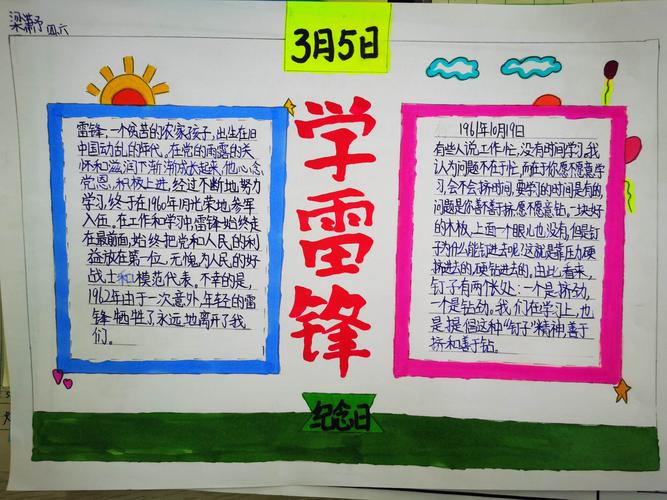 梁潇予 四、六
3月5日
学雷锋
纪念日
雷锋，一个贫苦的农家孩子，出生在旧
中国动乱的年代。在党的雨露的关
怀和滋润下渐渐成长起来，他心念
党恩，积极上进，经过不断地努力
学习，终于在1960年1月光荣地参军
入伍。在工作和学习中，雷锋始终走
在最前面，始终把党和人民的利
益放在第一位，无愧为人民的好
战士和模范代表。不幸的是，
1962年由于一次意外，年轻的雷
锋牺牲了，永远地离开了我
们。
1961年10月19日
有些人说工作忙，没有时间学习。我
认为问题不在于忙，而在于你愿不愿意学
习，会不会挤时间，要学习的时间是有的，
问题是你善不善于挤，愿不愿意钻。一块好
的木板，上面一个眼儿也没有，但是钉
子为什么能钻进去呢？这就是靠压力硬
挤进去的，硬钻进去的，由此看来，
钉子有两个长处：一个是挤劲，
一个是钻劲。我们在学习上，也
是提倡这种"钉子"精神，善于
挤和善于钻。